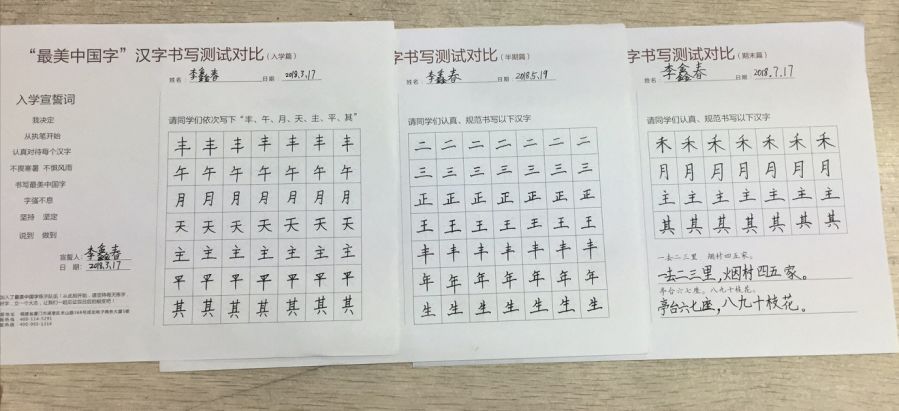 “最美中国字”汉字书写测试对比（入学篇）
姓名 李鑫春 日期 2018.3.17
入学宣誓词
我决定
从执笔开始
认真对待每个汉字
不畏寒暑 不惧风雨
书写最美中国字
字强不息
坚持 坚定
说到 做到
宣誓人：李鑫春
日 期：2018.3.17
请同学们依次写下“丰、午、月、天、主、平、其”
丰 丰 丰 丰 丰 丰 丰
午 午 午 午 午 午 午
月 月 月 月 月 月 月
天 天 天 天 天 天 天
主 主 主 主 主 主 主
平 平 平 平 平 平 平
其 其 其 其 其 其 其
字书写测试对比（半期篇）
姓名 李鑫春 日期 2018.5.19
请同学们认真、规范书写以下汉字
二 二 二 二 二 二 二
三 三 三 三 三 三 三
正 正 正 正 正 正 正
王 王 王 王 王 王 王
丰 丰 丰 丰 丰 丰 丰
年 年 年 年 年 年 年
生 生 生 生 生 生 生
字书写测试对比（期末篇）
姓名 李鑫春 日期 2018.7.17
请同学们认真、规范书写以下汉字
禾 禾 禾 禾 禾 禾 禾
月 月 月 月 月 月 月
主 主 主 主 主 主 主
其 其 其 其 其 其 其
一去二三里 烟村四五家。
一去二三里，烟村四五家。
亭台六七座，八九十枝花。
亭台六七座，八九十枝花。